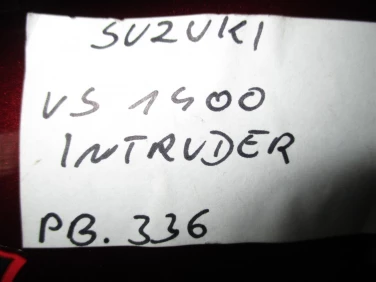 SUZUKI
VS 1400
INTRUDER
PB. 336